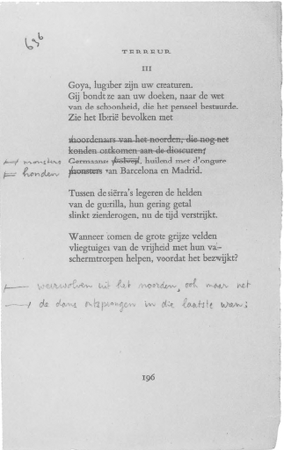 636
TERREUR
III
Goya, luguber zijn uw creaturen.
Gij bondt ze aan uw doeken, naar de wet
van de schoonheid, die het penseel bestuurde.
Zie het Iberië bevolken met
moordenaars van het noorden, die nog net
konden ontkomen aan de dioscuren,
monsters Germaanse huilend met d'ongure
honden monsters van Barcelona en Madrid.
Tussen de siërra's legeren de helden
van de guerilla, hun geriag getal
slinkt zienderogen, nu de tijd verstrijkt.
Wanneer komen de grote grijze velden
vliegtuigen van de vrijheid met hun va-
schermtroepen helpen, voordat het bezwijkt?
weerwolven uit het noorden, ook maar net
de dans ontsprongen in die laatste
196